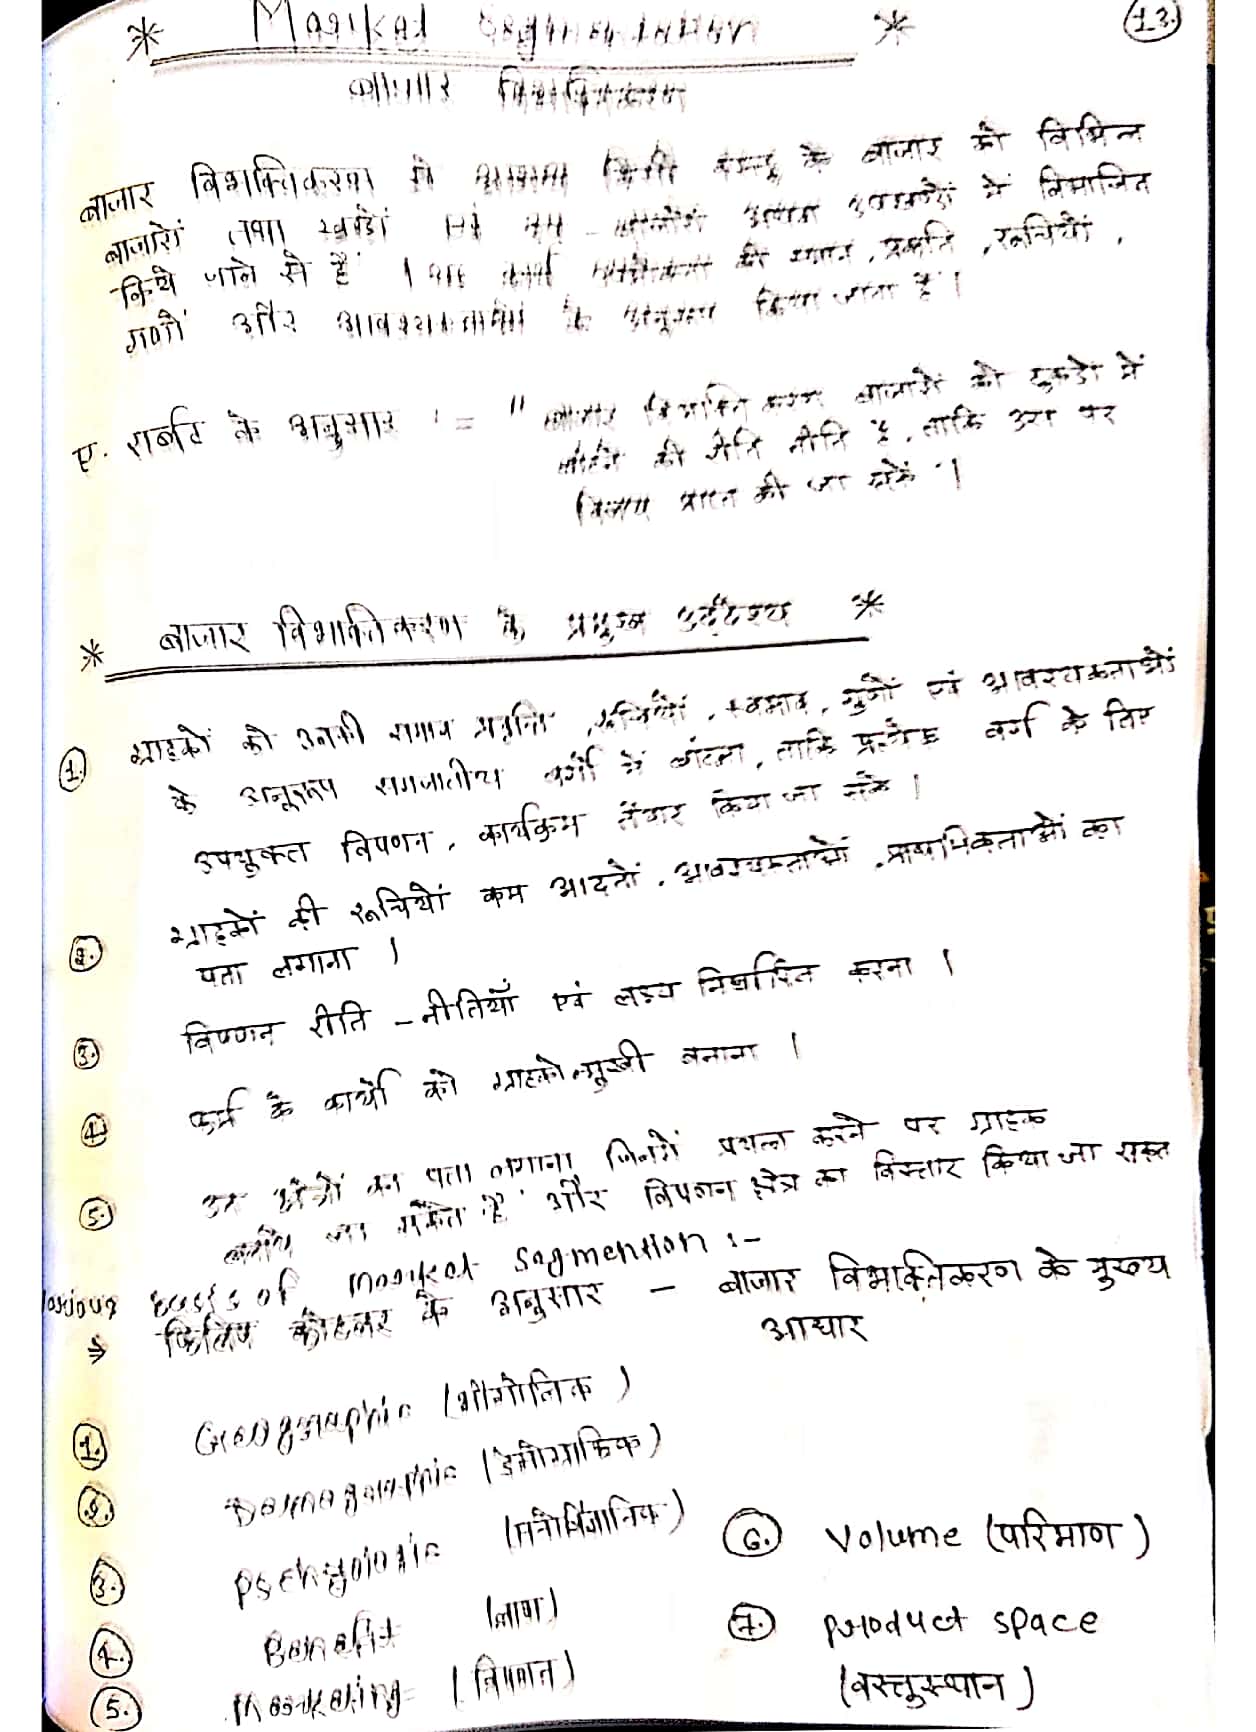 13.
* Market Segmentation *
बाजार विभक्तिकरण
बाजार विभक्तिकरण से आशय किसी वस्तु के बाजार को विभिन्न
बाजारों तथा खण्डों में उप - अथवा में विभाजित
किये जाने से है । यह कार्य की समान, प्रकृति, रूचियों,
गुणों और आवश्यकताओं के अनुसार किया जाता है ।
ए. रार्बट के अनुसार := " बाजार विभक्तिकरण बाजारों को टुकडो में
बांटने की रीति नीति है, ताकि उस पर
विजय प्राप्त की जा सकें " ।
* बाजार विभाक्तिकरण के प्रमुख उद्देश्य *
1. ग्राहकों को उनकी समान प्रवृत्ति, रूचियों, स्वभाव, गुणों एवं आवश्यकताओं
के अनुरूप समजातीय वर्गों में बांटना, ताकि प्रत्येक वर्ग के लिए
उपयुक्त विपणन, कार्यक्रम तैयार किया जा सके ।
2. ग्राहकों की रूचियों क्रम आदतों, आवश्यकताओं, प्राथमिकताओं का
पता लगाना ।
3. विपणन रीति - नीतियाँ एवं लक्ष्य निर्धारित करना ।
4. फर्म के कार्यो को ग्राहकोन्मुखी बनाना ।
5. उन क्षेत्रों का पता लगाना जिनमें प्रयत्न करने पर ग्राहक
बनाये जा सकते है और विपणन क्षेत्र का विस्तार किया जा सकत
basis of Market Sagmention :-
⇒ फिलिप कोटलर के अनुसार - बाजार विभक्तिकरण के मुख्य
आधार
1. Geographic (भौगोलिक)
2. Demographic (डेमोग्राफिक)
3. (मनोवैज्ञानिक)
4. Benefit (लाभ)
5. Marketing (विपणन)
6. Volume (परिमाण)
7. Product space
(वस्तुस्थान)